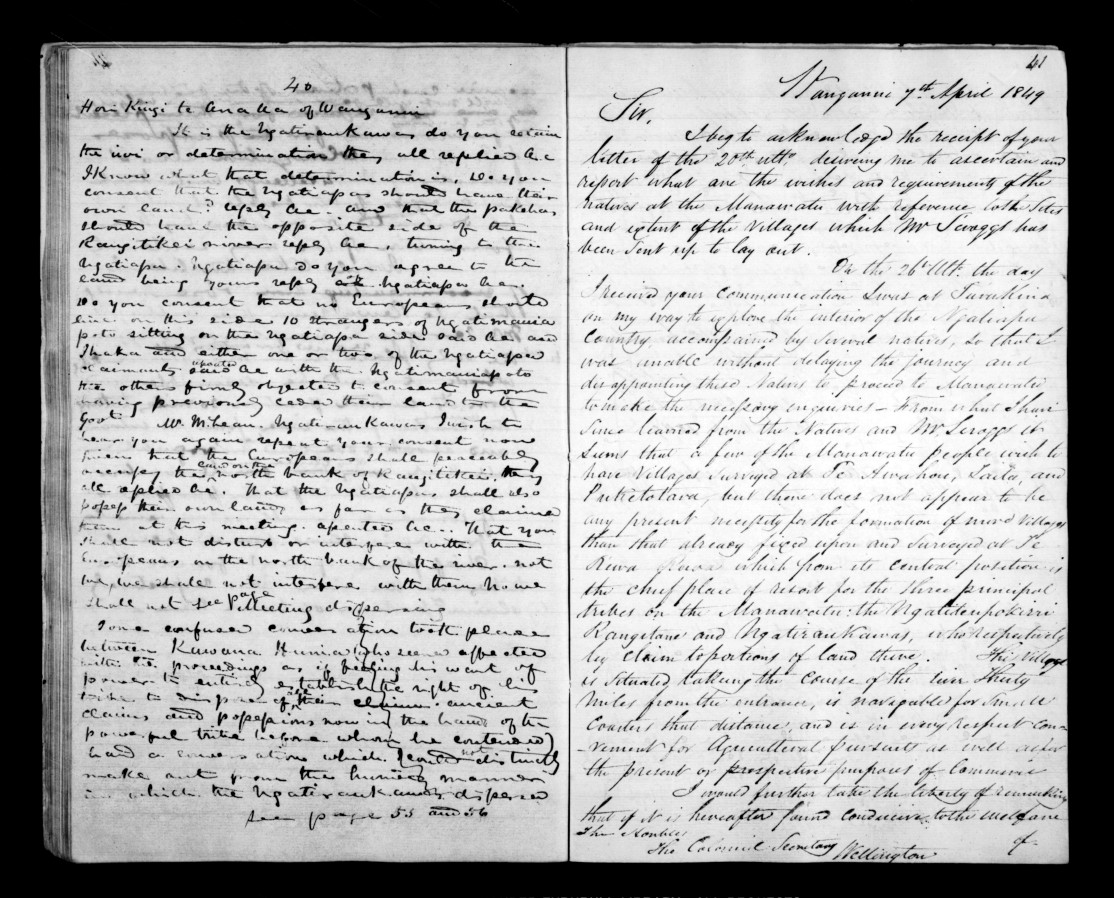 40
Hori Kingi te Anaua of Wanganui
It is the Ngatiraukawas do you retain
the iwi or determination they all replied Ae
I know what that determination is, do you
consent that the Ngatiapas should have their
own land? reply Ae. and that the pakehas
should have the opposite side of the
Rangitikei river reply Ae, turning to the
Ngatiapa. Ngatiapa do you agree to the
land being yours reply Ngatiapa Ae
do you consent that no Europeans should
live on this side. 10 strangers of Ngatimania
poto sitting on the Ngatiapa side said Ae and
Ihaka and either one or two of the Ngatiapa
claimants said Ae with the Ngatimaniapoto
the others firmly objected to consent from
having previously ceded their land to the
Govt Mr McLean. Ngatiraukawas I wish to
hear you again repeat your consent now
that the Europeans shall peaceably
occupy the land on the north bank of Rangitikei, they
all replied Ae. That the Ngatiapas shall also
possess their own land as far as they claimed
them at this meeting. assented Ae. That you
shall not disturb or interfere with the
Europeans on the north bank of the river. not
we, we shall not interfere with them. No we
shall not see page Meeting dispersing
Some confused conversation took place
between Kawana Hunia who seemed affected
with the proceedings as if feeling his want of
power to entirely establish the right of his
tribe to dispose of all their claims. ancient
claims and possessions now in the hands of the
powerful tribe before whom he contended
had a conversation which I could not distinctly
make out from the hurried manner
in which the Ngatiraukawas dispersed
see page 55 and 56
41
Wanganui 7th April 1849
Sir,
I beg to acknowledge the receipt of your
letter of the 20th ulto. desiring me to ascertain and
report what are the wishes and requirements of the
natives at the Manawatu with reference to the Sites
and extent of the Villages which Mr Scroggs has
been sent up to lay out.
On the 26th Ult. the day
I received your communication I was at Turakina
on my way to explore the interior of the Ngatiapa
Country accompanied by several natives, so that I
was unable without delaying the journey and
disappointing these Natives to proceed to Manawatu
to make the necessary enquiries – From what I have
since learned from the Natives and Mr Scroggs it
seems that a few of the Manawatu people wish to
have Villages surveyed at Te Awahou, and
Puketotara, but there does not appear to be
any present necessity for the formation of more Villages
than that already fixed upon and surveyed at Te
Rewa which from its central position is
the chief place of resort for the three principal
tribes on the Manawatu: the Ngatiteupokoiri
Rangetane and Ngatiraukawas, who respectively
lay claim to portions of land there. This Village
is situated taking the course of the river thirty
Miles from the entrance, is navigable for small
Coasters that distance, and is in every respect con-
-venient for Agricultural pursuits as well as for
the present or prospective purposes of Commerce
I would further take the liberty of remarking
that if it is hereafter found conducive to the welfare
The Honble of
The Colonial Secretary Wellington